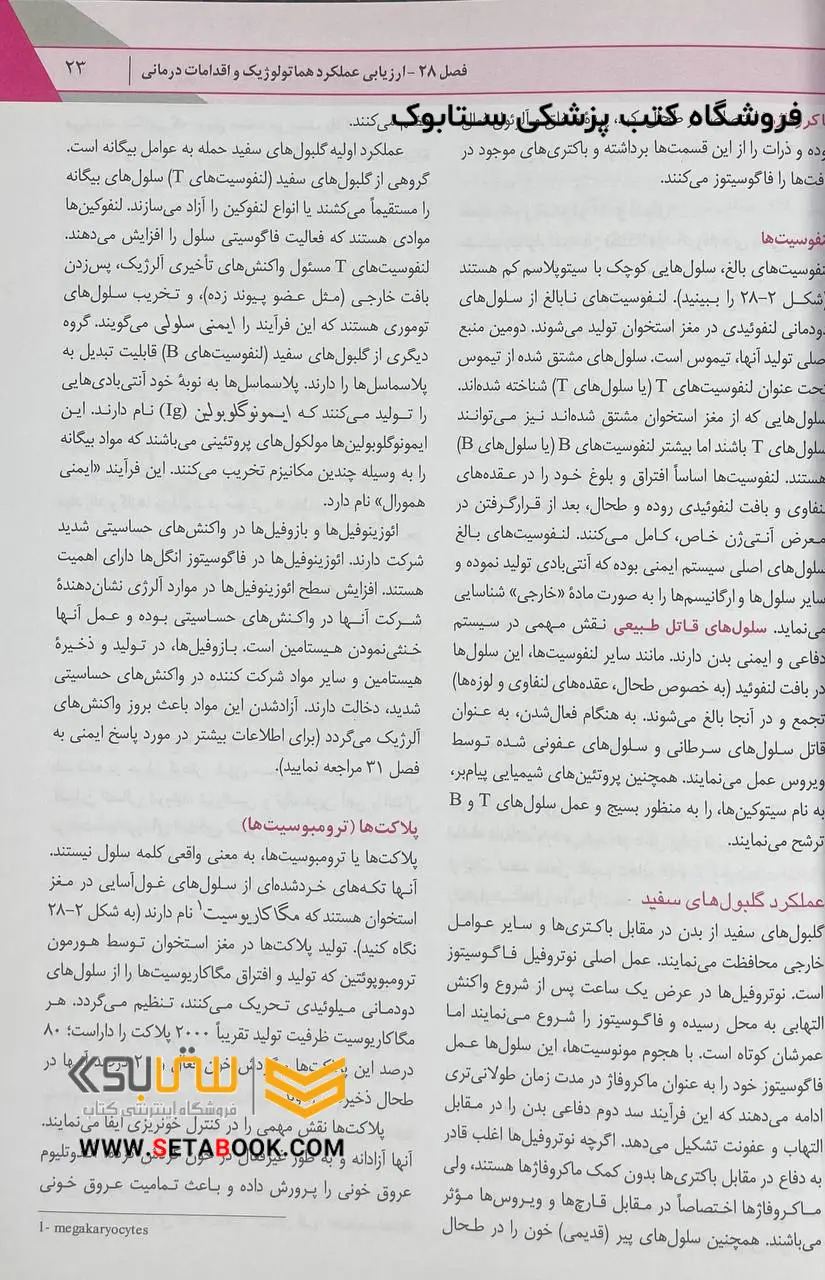 فصل ۲۸ - ارزیابی عملکرد هماتولوژیک و اقدامات درمانی
۲۳
فروشگاه کتب پزشکی ستابوک
وده و ذرات را از این قسمت‌ها برداشته و باکتری‌های موجود در
فت‌ها را فاگوسیتوز می‌کنند.
نفوسیت‌ها
نفوسیت‌های بالغ، سلول‌هایی کوچک با سیتوپلاسم کم هستند
(شکل ۲-۲۸ را ببینید). لنفوسیت‌های نابالغ از سلول‌های
دودمانی لنفوئیدی در مغز استخوان تولید می‌شوند. دومین منبع
صلی تولید آنها، تیموس است. سلول‌های مشتق شده از تیموس
تحت عنوان لنفوسیت‌های T (یا سلول‌های T) شناخته شده‌اند.
سلول‌هایی که از مغز استخوان مشتق شده‌اند نیز می‌توانند
سلول‌های T باشند اما بیشتر لنفوسیت‌های B (یا سلول‌های B)
هستند. لنفوسیت‌ها اساساً افتراق و بلوغ خود را در عقده‌های
نفاوی و بافت لنفوئیدی روده و طحال، بعد از قرارگرفتن در
معرض آنتی‌ژن خاص، کامل می‌کنند. لنفوسیت‌های بالغ
سلول‌های اصلی سیستم ایمنی بوده که آنتی‌بادی تولید نموده و
سایر سلول‌ها و ارگانیسم‌ها را به صورت مادهٔ «خارجی» شناسایی
می‌نماید. سلول‌های قاتل طبیعی نقش مهمی در سیستم
دفاعی و ایمنی بدن دارند. مانند سایر لنفوسیت‌ها، این سلول‌ها
در بافت لنفوئید (به خصوص طحال، عقده‌های لنفاوی و لوزه‌ها)
تجمع و در آنجا بالغ می‌شوند. به هنگام فعال‌شدن، به عنوان
قاتل سلول‌های سرطانی و سلول‌های عفونی شده توسط
ویروس عمل می‌نمایند. همچنین پروتئین‌های شیمیایی پیام‌بر،
به نام سیتوکین‌ها، را به منظور بسیج و عمل سلول‌های T و B
ترشح می‌نمایند.
عملکرد گلبول‌های سفید
گلبول‌های سفید از بدن در مقابل باکتری‌ها و سایر عوامل
خارجی محافظت می‌نمایند. عمل اصلی نوتروفیل فاگوسیتوز
است. نوتروفیل‌ها در عرض یک ساعت پس از شروع واکنش
التهابی به محل رسیده و فاگوسیتوز را شروع می‌نمایند اما
عمرشان کوتاه است. با هجوم مونوسیت‌ها، این سلول‌ها عمل
فاگوسیتوز خود را به عنوان ماکروفاژ در مدت زمان طولانی‌تری
ادامه می‌دهند که این فرآیند سد دوم دفاعی بدن را در مقابل
التهاب و عفونت تشکیل می‌دهد. اگرچه نوتروفیل‌ها اغلب قادر
به دفاع در مقابل باکتری‌ها بدون کمک ماکروفاژها هستند، ولی
ماکروفاژها اختصاصاً در مقابل قارچ‌ها و ویروس‌ها مؤثر
می‌باشند. همچنین سلول‌های پیر (قدیمی) خون را در طحال
می‌کنند.
عملکرد اولیه گلبول‌های سفید حمله به عوامل بیگانه است.
گروهی از گلبول‌های سفید (لنفوسیت‌های T) سلول‌های بیگانه
را مستقیماً می‌کشند یا انواع لنفوکین را آزاد می‌سازند. لنفوکین‌ها
موادی هستند که فعالیت فاگوسیتی سلول را افزایش می‌دهند.
لنفوسیت‌های T مسئول واکنش‌های تأخیری آلرژیک، پس‌زدن
بافت خارجی (مثل عضو پیوند زده)، و تخریب سلول‌های
توموری هستند که این فرآیند را ایمنی سلولی می‌گویند. گروه
دیگری از گلبول‌های سفید (لنفوسیت‌های B) قابلیت تبدیل به
پلاسماسل‌ها را دارند. پلاسماسل‌ها به نوبهٔ خود آنتی‌بادی‌هایی
را تولید می‌کنند که ایمونوگلوبولین (Ig) نام دارند. این
ایمونوگلوبولین‌ها مولکول‌های پروتئینی می‌باشند که مواد بیگانه
را به وسیله چندین مکانیزم تخریب می‌کنند. این فرآیند «ایمنی
همورال» نام دارد.
ائوزینوفیل‌ها و بازوفیل‌ها در واکنش‌های حساسیتی شدید
شرکت دارند. ائوزینوفیل‌ها در فاگوسیتوز انگل‌ها دارای اهمیت
هستند. افزایش سطح ائوزینوفیل‌ها در موارد آلرژی نشان‌دهندهٔ
شرکت آنها در واکنش‌های حساسیتی بوده و عمل آنها
خنثی‌نمودن هیستامین است. بازوفیل‌ها، در تولید و ذخیرهٔ
هیستامین و سایر مواد شرکت کننده در واکنش‌های حساسیتی
شدید، دخالت دارند. آزادشدن این مواد باعث بروز واکنش‌های
آلرژیک می‌گردد (برای اطلاعات بیشتر در مورد پاسخ ایمنی به
فصل ۳۱ مراجعه نمایید).
پلاکت‌ها (ترومبوسیت‌ها)
پلاکت‌ها یا ترومبوسیت‌ها، به معنی واقعی کلمه سلول نیستند.
آنها تکه‌های خردشده‌ای از سلول‌های غول‌آسایی در مغز
استخوان هستند که مگاکاریوسیت۱ نام دارند (به شکل ۲-۲۸
نگاه کنید). تولید پلاکت‌ها در مغز استخوان توسط هورمون
ترومبوپوئتین که تولید و افتراق مگاکاریوسیت‌ها را از سلول‌های
دودمانی میلوئیدی تحریک می‌کنند، تنظیم می‌گردد. هر
مگاکاریوسیت ظرفیت تولید تقریباً ۲۰۰۰ پلاکت را داراست؛ ۸۰
درصد این پلاکت‌ها در
طحال ذخیره
پلاکت‌ها نقش مهمی را در کنترل خونریزی ایفا می‌نمایند.
آنها آزادانه و به طور غیرفعال در خون گردش کرده، اندوتلیوم
عروق خونی را پرورش داده و باعث تمامیت عروق خونی
1- megakaryocytes
ستابوک
فروشگاه اینترنتی کتاب
WWW.SETABOOK.COM